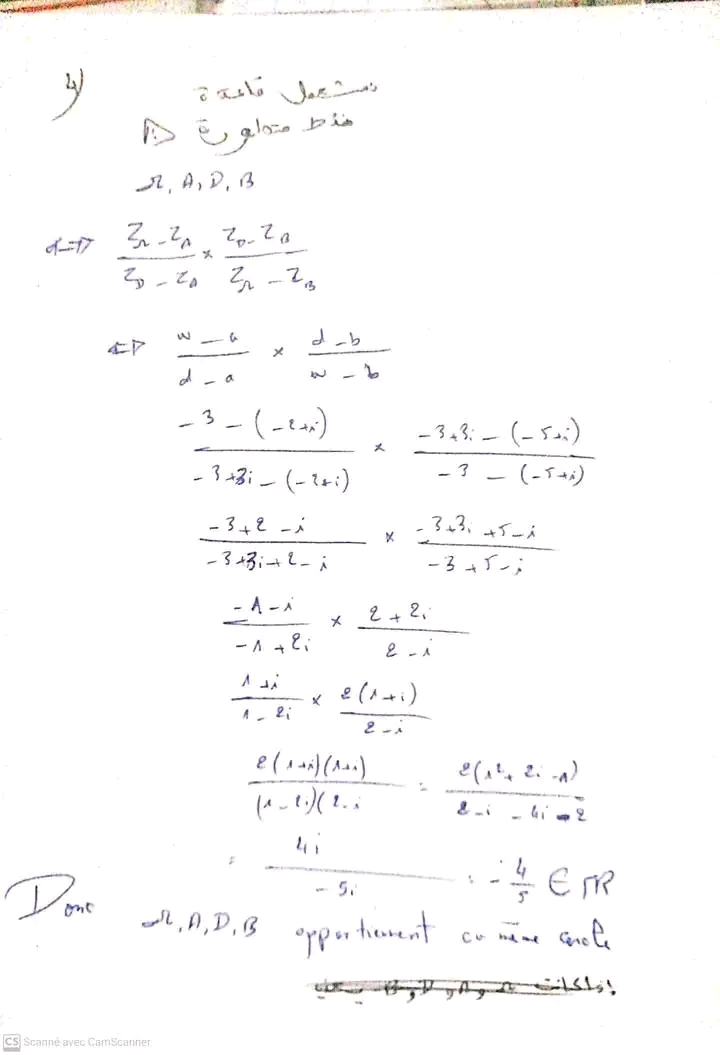 4)
نستعمل قاعدة
نقط متداورة
Ω, A, D, B
<=> (Z_Ω - Z_A)/(Z_D - Z_A) × (Z_D - Z_B)/(Z_Ω - Z_B)
<=> (w - a)/(d - a) × (d - b)/(w - b)
(-3 - (-2+i))/(-3+3i - (-2+i)) × (-3+3i - (-5+i))/(-3 - (-5+i))
(-3+2-i)/(-3+3i+2-i) × (-3+3i+5-i)/(-3+5-i)
(-1-i)/(-1+2i) × (2+2i)/(2-i)
(1+i)/(1-2i) × 2(1+i)/(2-i)
2(1+i)(1+i)/(1-2i)(2-i = 2(1²+2i-1)/(2-i-4i-2)
= 4i/(-5i) = -4/5 ∈ IR
Donc Ω, A, D, B appartiennent au même cercle
CS Scanné avec CamScanner